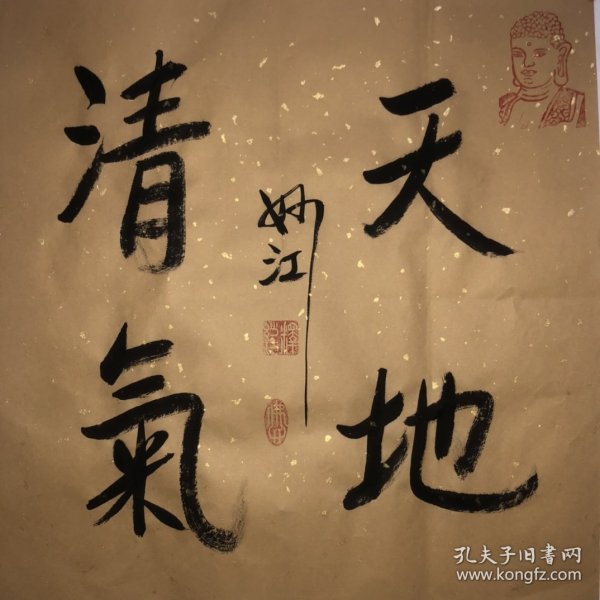 天地
清氣
妙江
孔夫子旧书网
www.kongfz.com